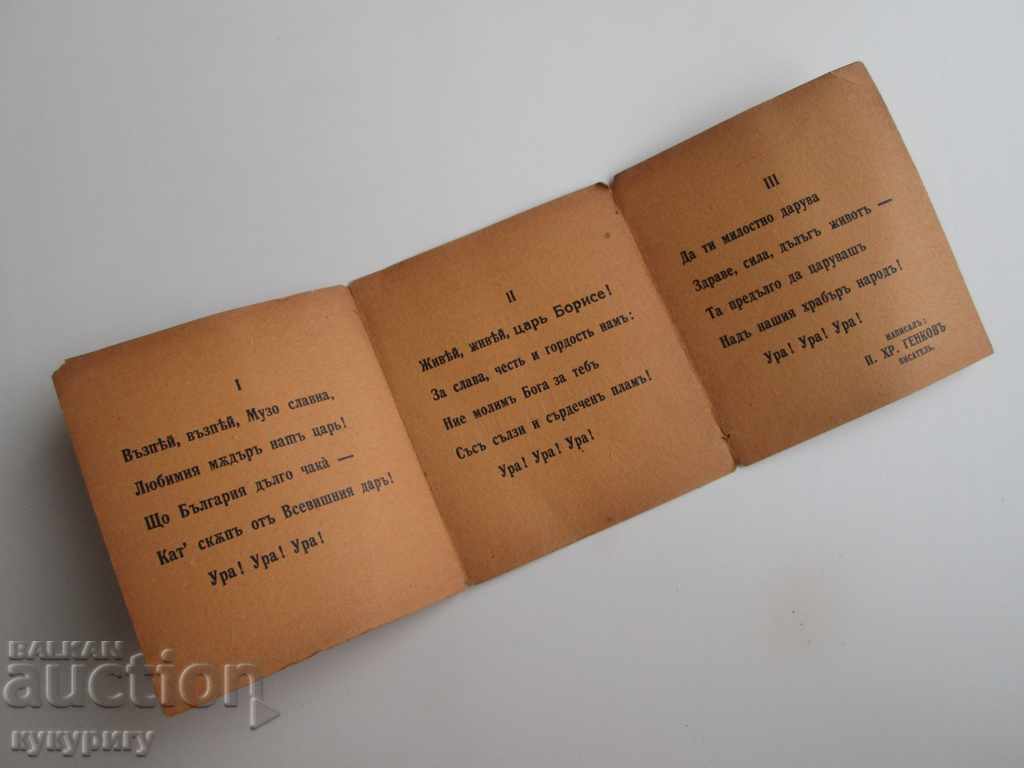 I
Възпѣй, възпѣй, Музо славна,
Любимия мѫдъръ нашъ царь!
Що България дълго чака̀ —
Кат' скѫпъ отъ Всевишния даръ!
Ура! Ура! Ура!
II
Живѣй, живѣй, царь Борисе!
За слава, честь и гордость намъ:
Ние молимъ Бога за тебъ
Съсъ сълзи и сърдеченъ пламъ!
Ура! Ура! Ура!
III
Да ти милостно дарува
Здраве, сила, дълъгъ животъ —
Та предълго да царувашъ
Надъ нашия храбъръ народъ!
Ура! Ура! Ура!
НАПИСАЛЪ:
П. ХР. ГЕНКОВЪ
ПИСАТЕЛЬ.
BALKAN
auction
кукуригу